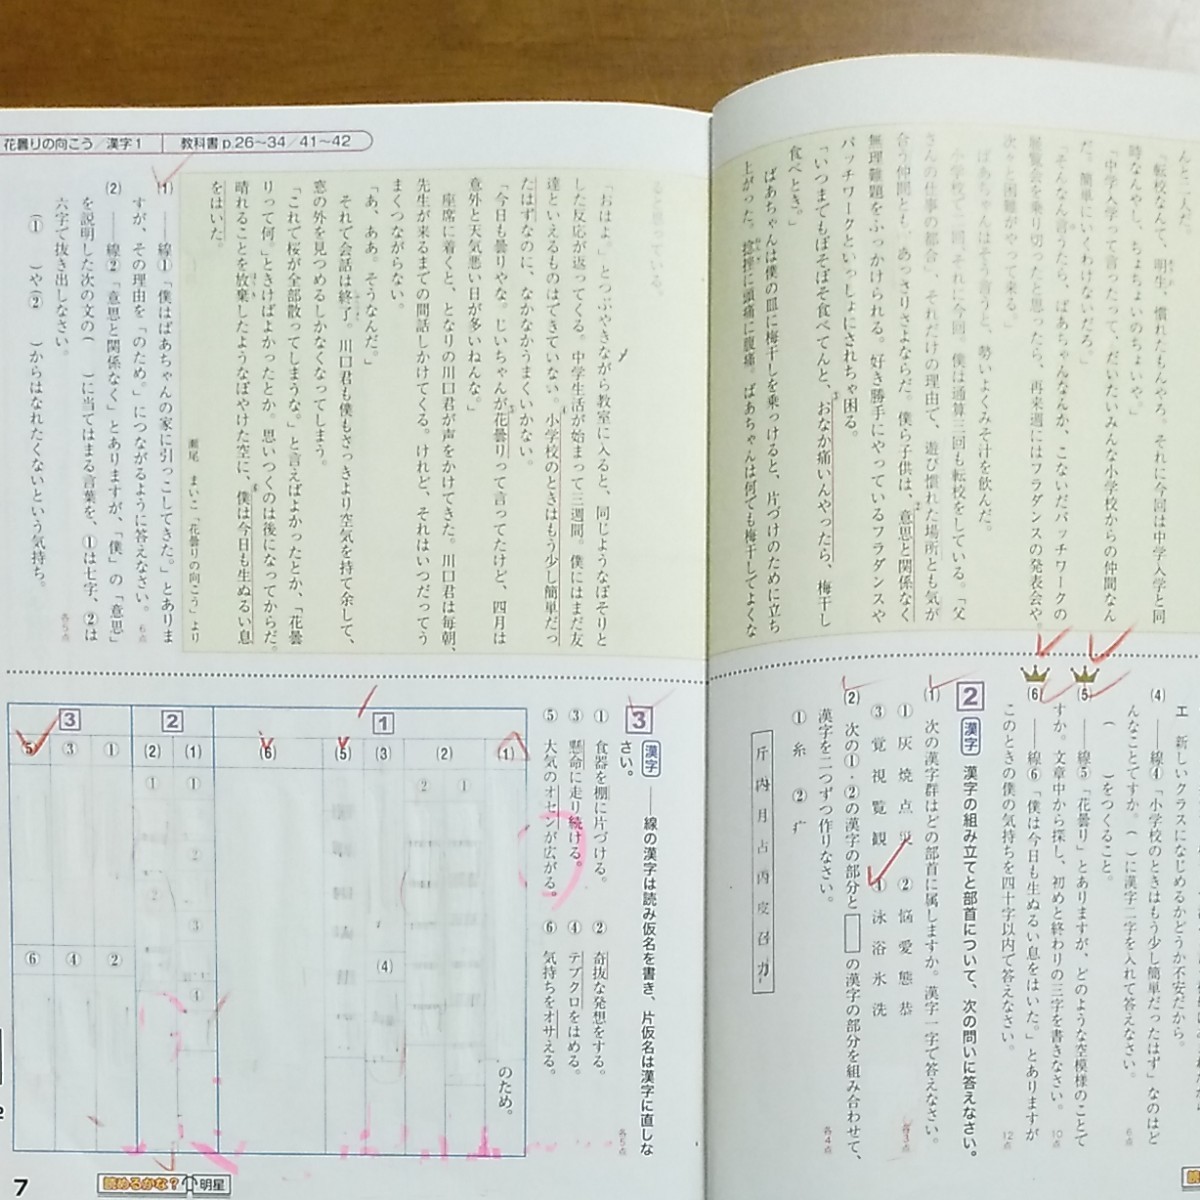 花曇りの向こう／漢字1　教科書p.26〜34／41〜42
んと二人だ。
「転校なんて、明生、慣れたもんやろ。それに今回は中学入学と同
時なんやし、ちょちょいのちょいや。」
「中学入学って言ったって、だいたいみんな小学校からの仲間なん
だ。簡単にいくわけないだろ。」
「そんなん言うたら、ばあちゃんなんか、こないだパッチワークの
展覧会を乗り切ったと思ったら、再来週にはフラダンスの発表会や。
次々と困難がやって来る。」
ばあちゃんはそう言うと、勢いよくみそ汁を飲んだ。
小学校で二回、それに今回。僕は通算三回も転校をしている。「父
さんの仕事の都合」、それだけの理由で、遊び慣れた場所とも気が
合う仲間とも、あっさりさよならだ。僕ら子供は、意思と関係なく
無理難題をふっかけられる。好き勝手にやっているフラダンスや
パッチワークといっしょにされちゃ困る。
「いつまでもぼそぼそ食べてんと、おなか痛いんやったら、梅干し
食べとき。」
ばあちゃんは僕の皿に梅干しを乗っけると、片づけのために立ち
上がった。捻挫に頭痛に腹痛。ばあちゃんは何でも梅干してよくな
ると思っている。
「おはよ。」とつぶやきながら教室に入ると、同じようなぼそりと
した反応が返ってくる。中学生活が始まって三週間。僕にはまだ友
達といえるものはできていない。小学校のときはもう少し簡単だっ
たはずなのに、なかなかうまくいかない。
「今日も曇りやな。じいちゃんが花曇りって言ってたけど、四月は
意外と天気悪い日が多いねんな。」
座席に着くと、となりの川口君が声をかけてきた。川口君は毎朝、
先生が来るまでの間話しかけてくる。けれど、それはいつだってう
まくつながらない。
「あ、ああ。そうなんだ。」
それで会話は終了。川口君も僕もさっきより空気を持て余して、
窓の外を見つめるしかなくなってしまう。
「これで桜が全部散ってしまうな。」と言えばよかったとか、「花曇
りって何。」ときけばよかったとか。思いつくのは後になってからだ。
晴れることを放棄したようなぼやけた空に、僕は今日も生ぬるい息
をはいた。
瀬尾　まいこ「花曇りの向こう」より
(1) ――線①「僕はばあちゃんの家に引っこしてきた。」とありま
すが、その理由を「のため。」につながるように答えなさい。 6点
(2) ――線②「意思と関係なく」とありますが、「僕」の「意思」
を説明した次の文の（　）に当てはまる言葉を、①は七字、②は
六字で抜き出しなさい。 各5点
（①　）や（②　）からはなれたくないという気持ち。
エ　新しいクラスになじめるかどうか不安だから。
(4) ――線4「小学校のときはもう少し簡単だったはず」なのはど
んなことですか。（　）に漢字二字を入れて答えなさい。 6点
（　）をつくること。
(5) ――線5「花曇り」とありますが、どのような空模様のことで
すか。文章中から探し、初めと終わりの三字を書きなさい。 10点
(6) ――線6「僕は今日も生ぬるい息をはいた。」とありますが
このときの僕の気持ちを四十字以内で答えなさい。 12点
2 漢字 漢字の組み立てと部首について、次の問いに答えなさい。
(1) 次の漢字群はどの部首に属しますか。漢字一字で答えなさい。 各3点
① 灰　焼　点　災　② 悩　愛　態　恭
③ 覚　視　覧　観　④ 泳　浴　氷　洗
(2) 次の①・②の漢字の部分と□の漢字の部分を組み合わせて、
漢字を二つずつ作りなさい。 各4点
① 糸　② 疒
斤　内　月　占　丙　皮　召　力
3 漢字 ――線の漢字は読み仮名を書き、片仮名は漢字に直しな
さい。 各5点
① 食器を棚に片づける。　② 奇抜な発想をする。
③ 懸命に走り続ける。　④ テブクロをはめる。
⑤ 大気のオセンが広がる。　⑥ 気持ちをオサえる。
1
(1) のため。
(2) ① ②
(3) (4)
(5)
(6)
2
(1) ① ② ③ ④
(2) ① ②
3
① ②
③ ④
⑤ ⑥
7
読めるかな？ 明星